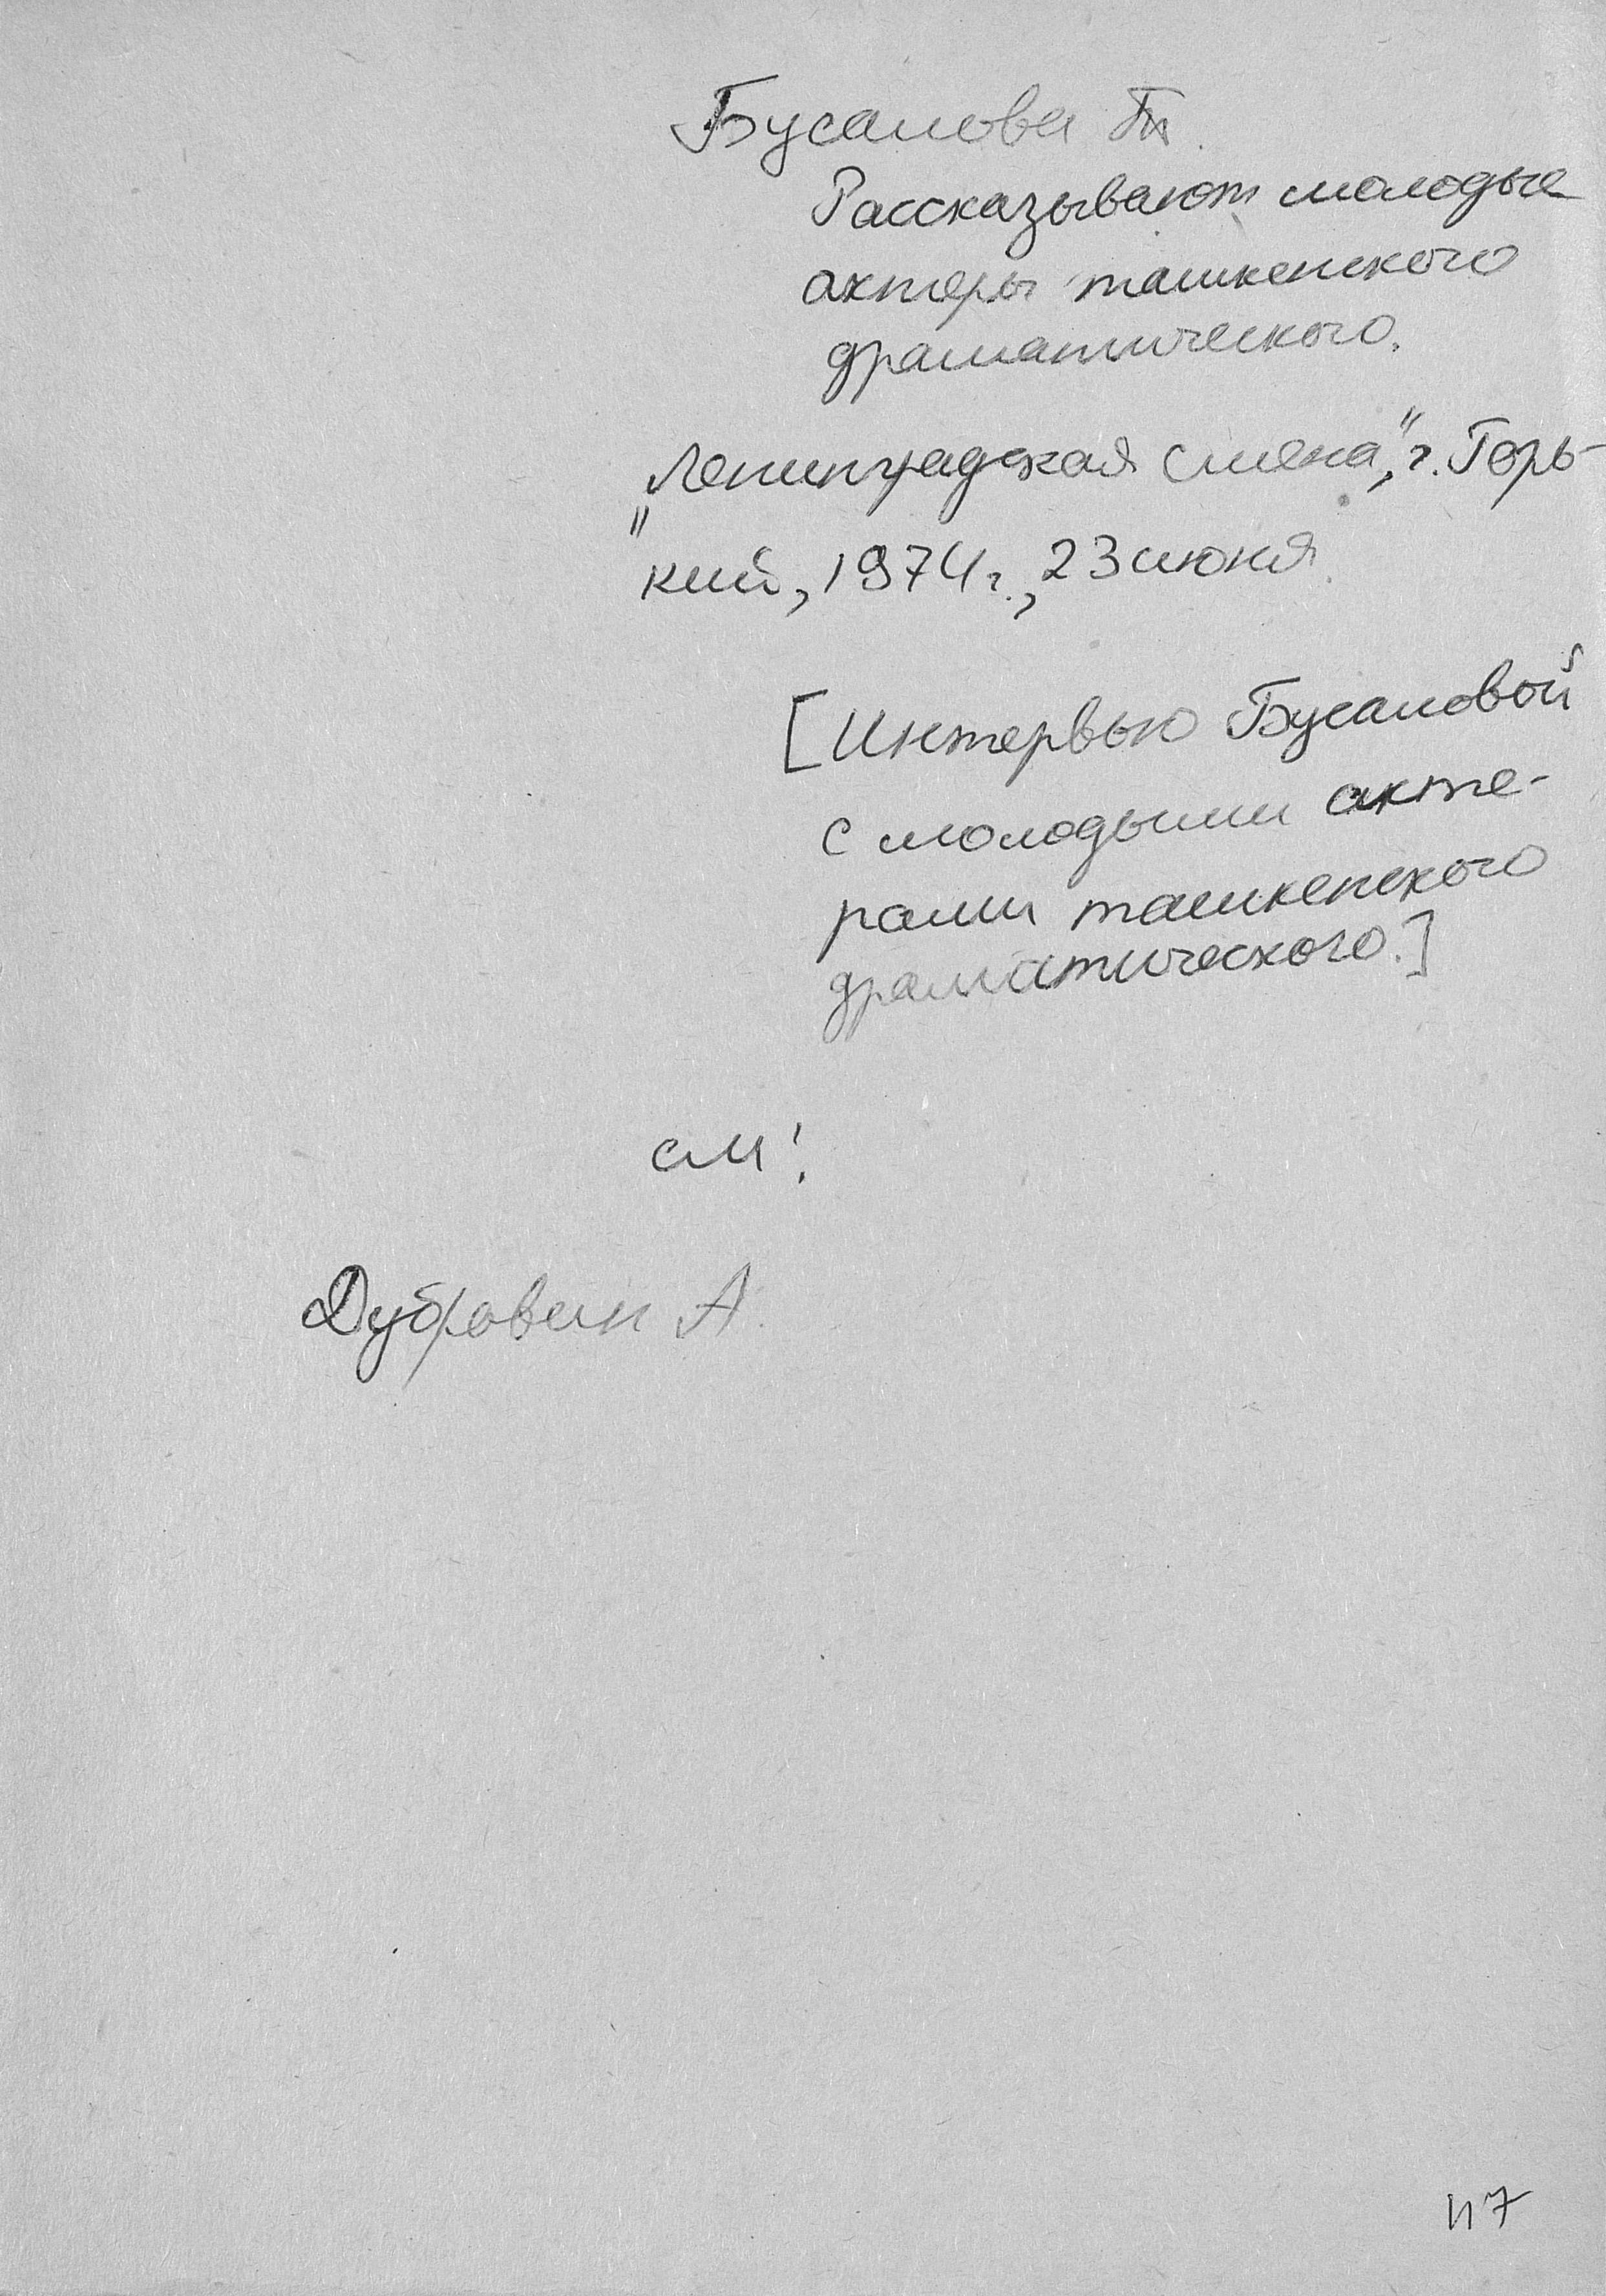 Бусалова Т.
Рассказывают молодые
актеры ташкенского
драматического.
"Ленинградская смена", г. Горь-
кий, 1974 г., 23 июня.
[Интервью Бусаловой
с молодыми акте-
рами ташкенского
драматического.]
см:
Дубровин А.
117